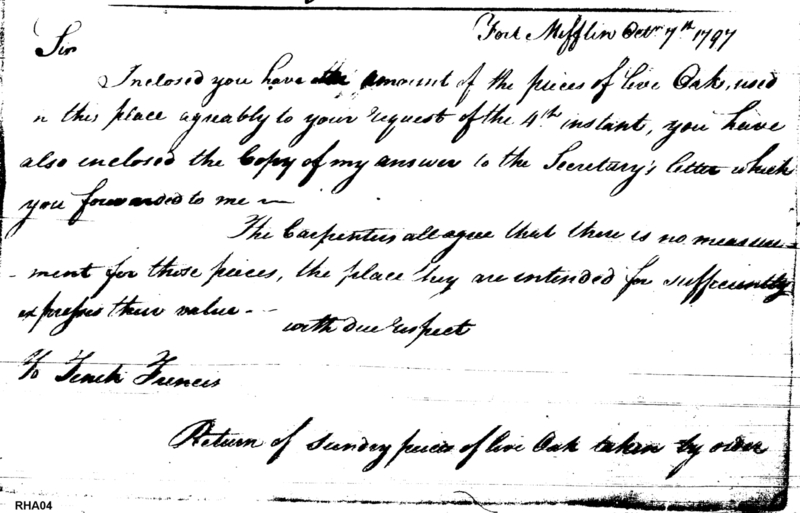 Fort Mifflin Octr 7th 1797
Sir
Inclosed you have the amount of the pieces of live Oak, used
n this place agreably to your request of the 4th instant, you have
also enclosed the Copy of my answer to the Secretary's letter which
you forwarded to me —
The Carpenters all agree that there is no measure-
-ment for those pieces, the place they are intended for sufficiently
expresses their value -
with due respect
To Tench Francis
Return of sundry pieces of live Oak taken by order
RHA04